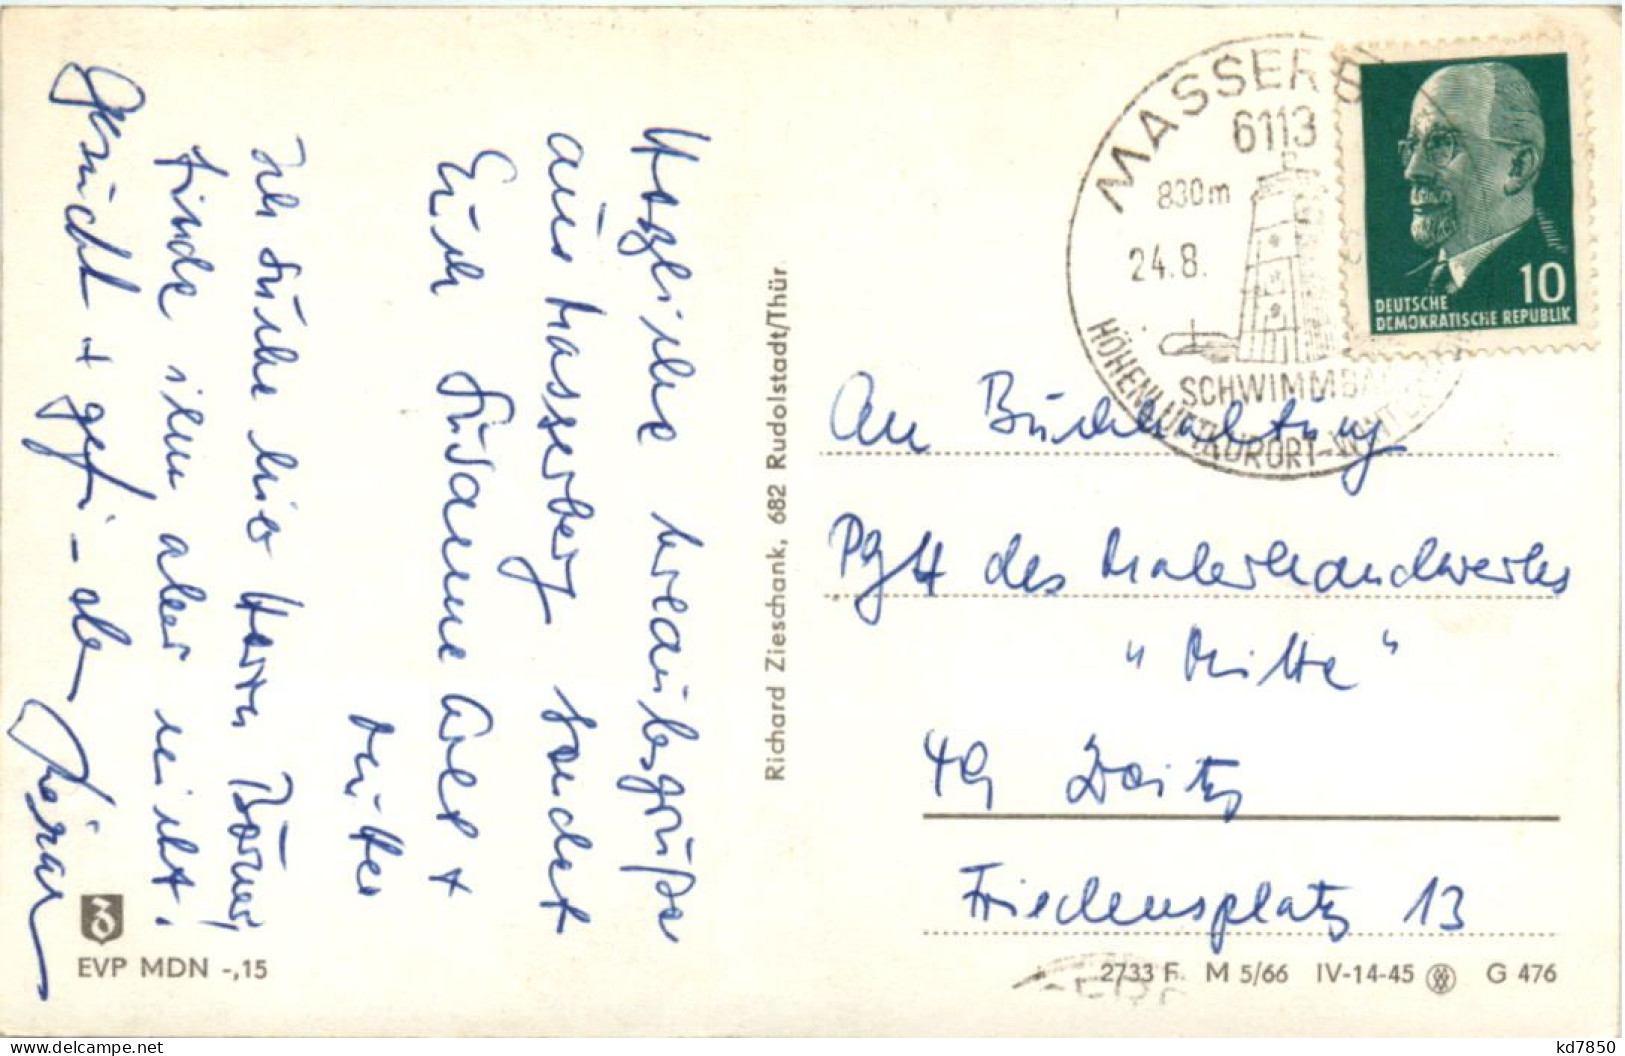 Herzliche Urlaubsgrüße
aus Masserberg sendet
Euch Susanne Axel +
Mutter
Ich suche hier Herrn Börner,
finde ihn aber nicht!
Gesucht + gef. - de
Richard Zieschank, 682 Rudolstadt/Thür.
MASSERB
6113
830m
24.8.
SCHWIMMBA
HÖHENLUFTKURORT-WINT
10
DEUTSCHE
DEMOKRATISCHE REPUBLIK
An Buchhaltung
PGH des Malerhandwerks
"Mitte"
49 Zeitz
Friedensplatz 13
EVP MDN -,15
2733 F. M 5/66 IV-14-45 G 476
kd7850